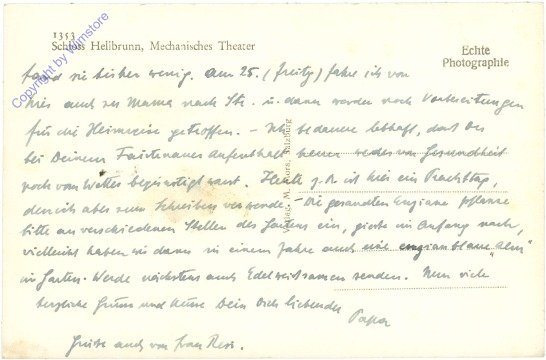 1353
Schloss Hellbrunn, Mechanisches Theater
Echte
Photographie
Copyright by Wimstore
fand sie bisher wenig. Am 25. (Freitg) fahre ich von
hier auch zur Mama nach Str. u. dann werden noch Vorbereitungen
für die Heimreise getroffen. – Ich bedauere lebhaft, dass Du
bei Deinem Aufenthalt weder von Gesundheit
noch vom Wetter begünstigt warst. Heute z. B. ist hier ein Prachttag,
den ich aber zum Schreiben verwende. – Die gesandten Enziane pflanze
bitte an verschiedenen Stellen des Gartens ein, giesse im Anfang nach,
vielleicht haben wir dann in einem Jahre auch eine enzianblaue "Alm"
im Garten. Werde nächstens auch Edelweissamen senden. Nun viele
herzliche Grüsse und Küsse Dein Dich liebender
Papa
Grüsse auch von Frau Resi.
Salzburg